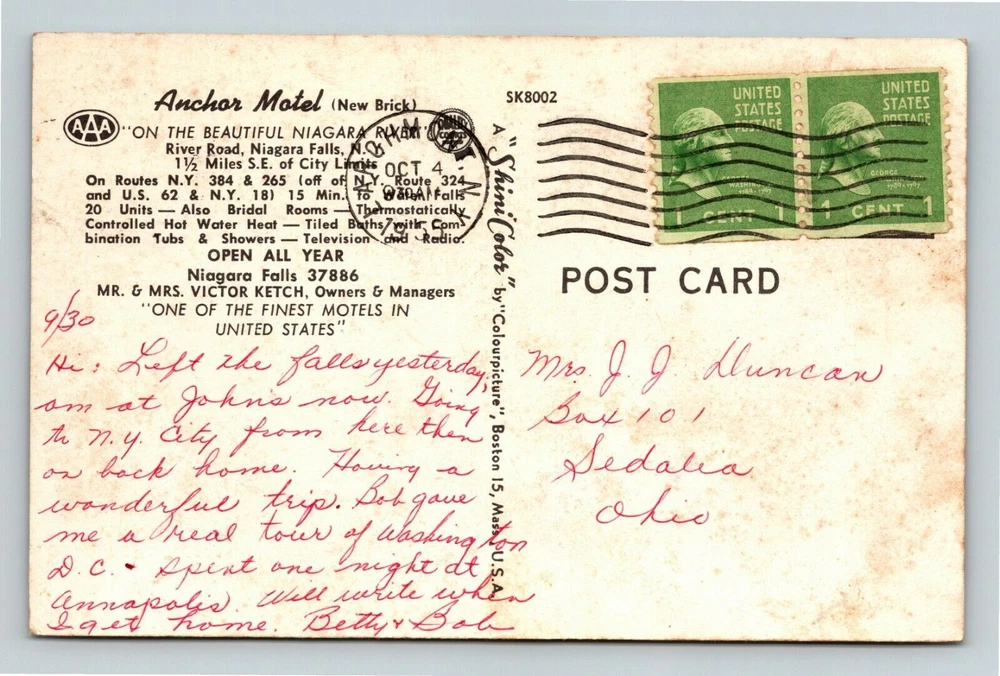 Anchor Motel (New Brick)
AAA
"ON THE BEAUTIFUL NIAGARA RIVER"
River Road, Niagara Falls, N.Y.
1½ Miles S.E. of City Limits
On Routes N.Y. 384 & 265 (off of N.Y. Route 324
and U.S. 62 & N.Y. 18) 15 Min. to Water Falls
20 Units — Also Bridal Rooms — Thermostatically
Controlled Hot Water Heat — Tiled Baths with Com-
bination Tubs & Showers — Television and Radio.
OPEN ALL YEAR
Niagara Falls 37886
MR. & MRS. VICTOR KETCH, Owners & Managers
"ONE OF THE FINEST MOTELS IN
UNITED STATES"
9/30
Hi: Left the falls yesterday,
am at Johns now. Going
to N.Y. City from here then
on back home. Having a
wonderful trip. Bob gave
me a real tour of Washington
D.C. Spent one night at
Annapolis. Will write when
I get home. Betty & Bob
A "Shini-Color" by "Colourpicture", Boston 15, Mass., U.S.A.
SK8002
OCT 4
930AM
UNITED
STATES
POSTAGE
GEORGE
WASHINGTON
1789-1797
1 CENT 1
UNITED
STATES
POSTAGE
GEORGE
WASHINGTON
1789-1797
1 CENT 1
POST CARD
Mrs. J. J. Duncan
Box 101
Sedalia
Ohio